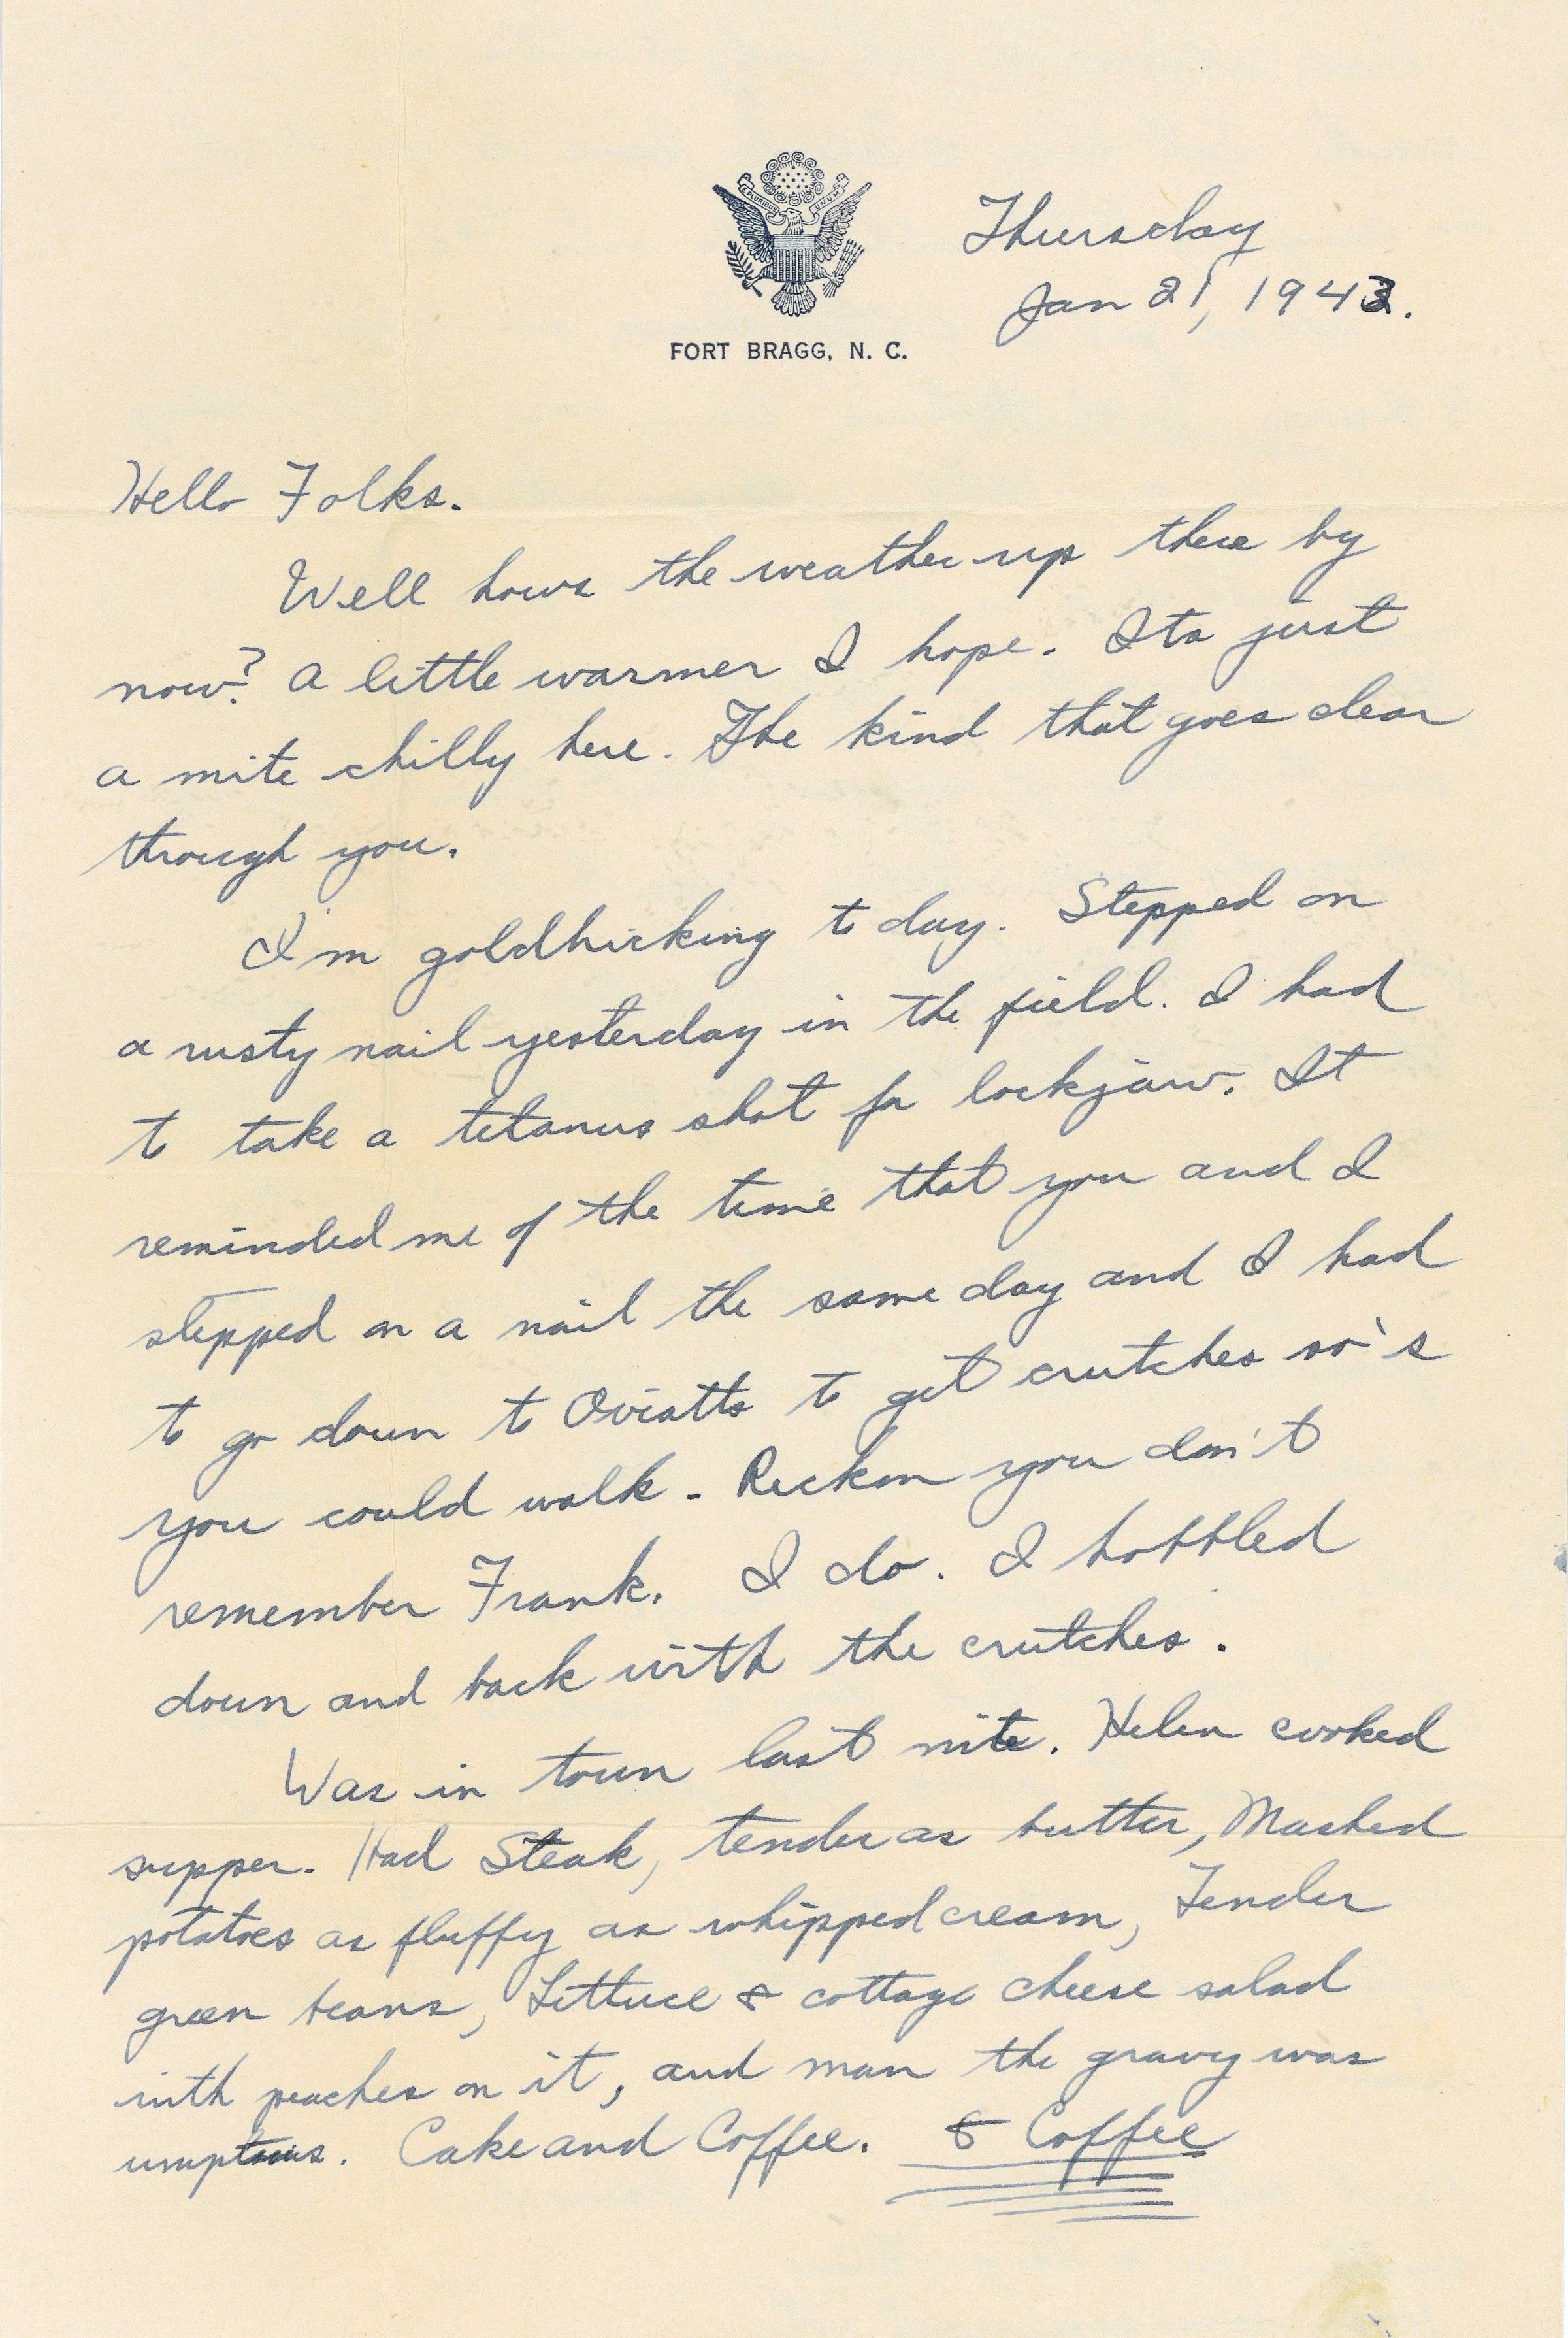 E PLURIBUS UNUM
Thursday
Jan 21, 1943.
FORT BRAGG, N. C.
Hello Folks.
Well hows the weather up there by
now? A little warmer I hope. Its just
a mite chilly here. The kind that goes clear
through you.
I'm goldbricking to day. Stepped on
a rusty nail yesterday in the field. I had
to take a tetanus shot for lockjaw. It
reminded me of the time that you and I
stepped on a nail the same day and I had
to go down to Oviatts to get crutches so's
you could walk. Reckon you don't
remember Frank. I do. I hobbled
down and back with the crutches.
Was in town last nite. Helen cooked
supper. Had Steak, tender as butter, Mashed
potatoes as fluffy as whipped cream, Tender
green beans, Lettuce & cottage cheese salad
with peaches on it, and man the gravy was
umptious. Cake and Coffee. & Coffee